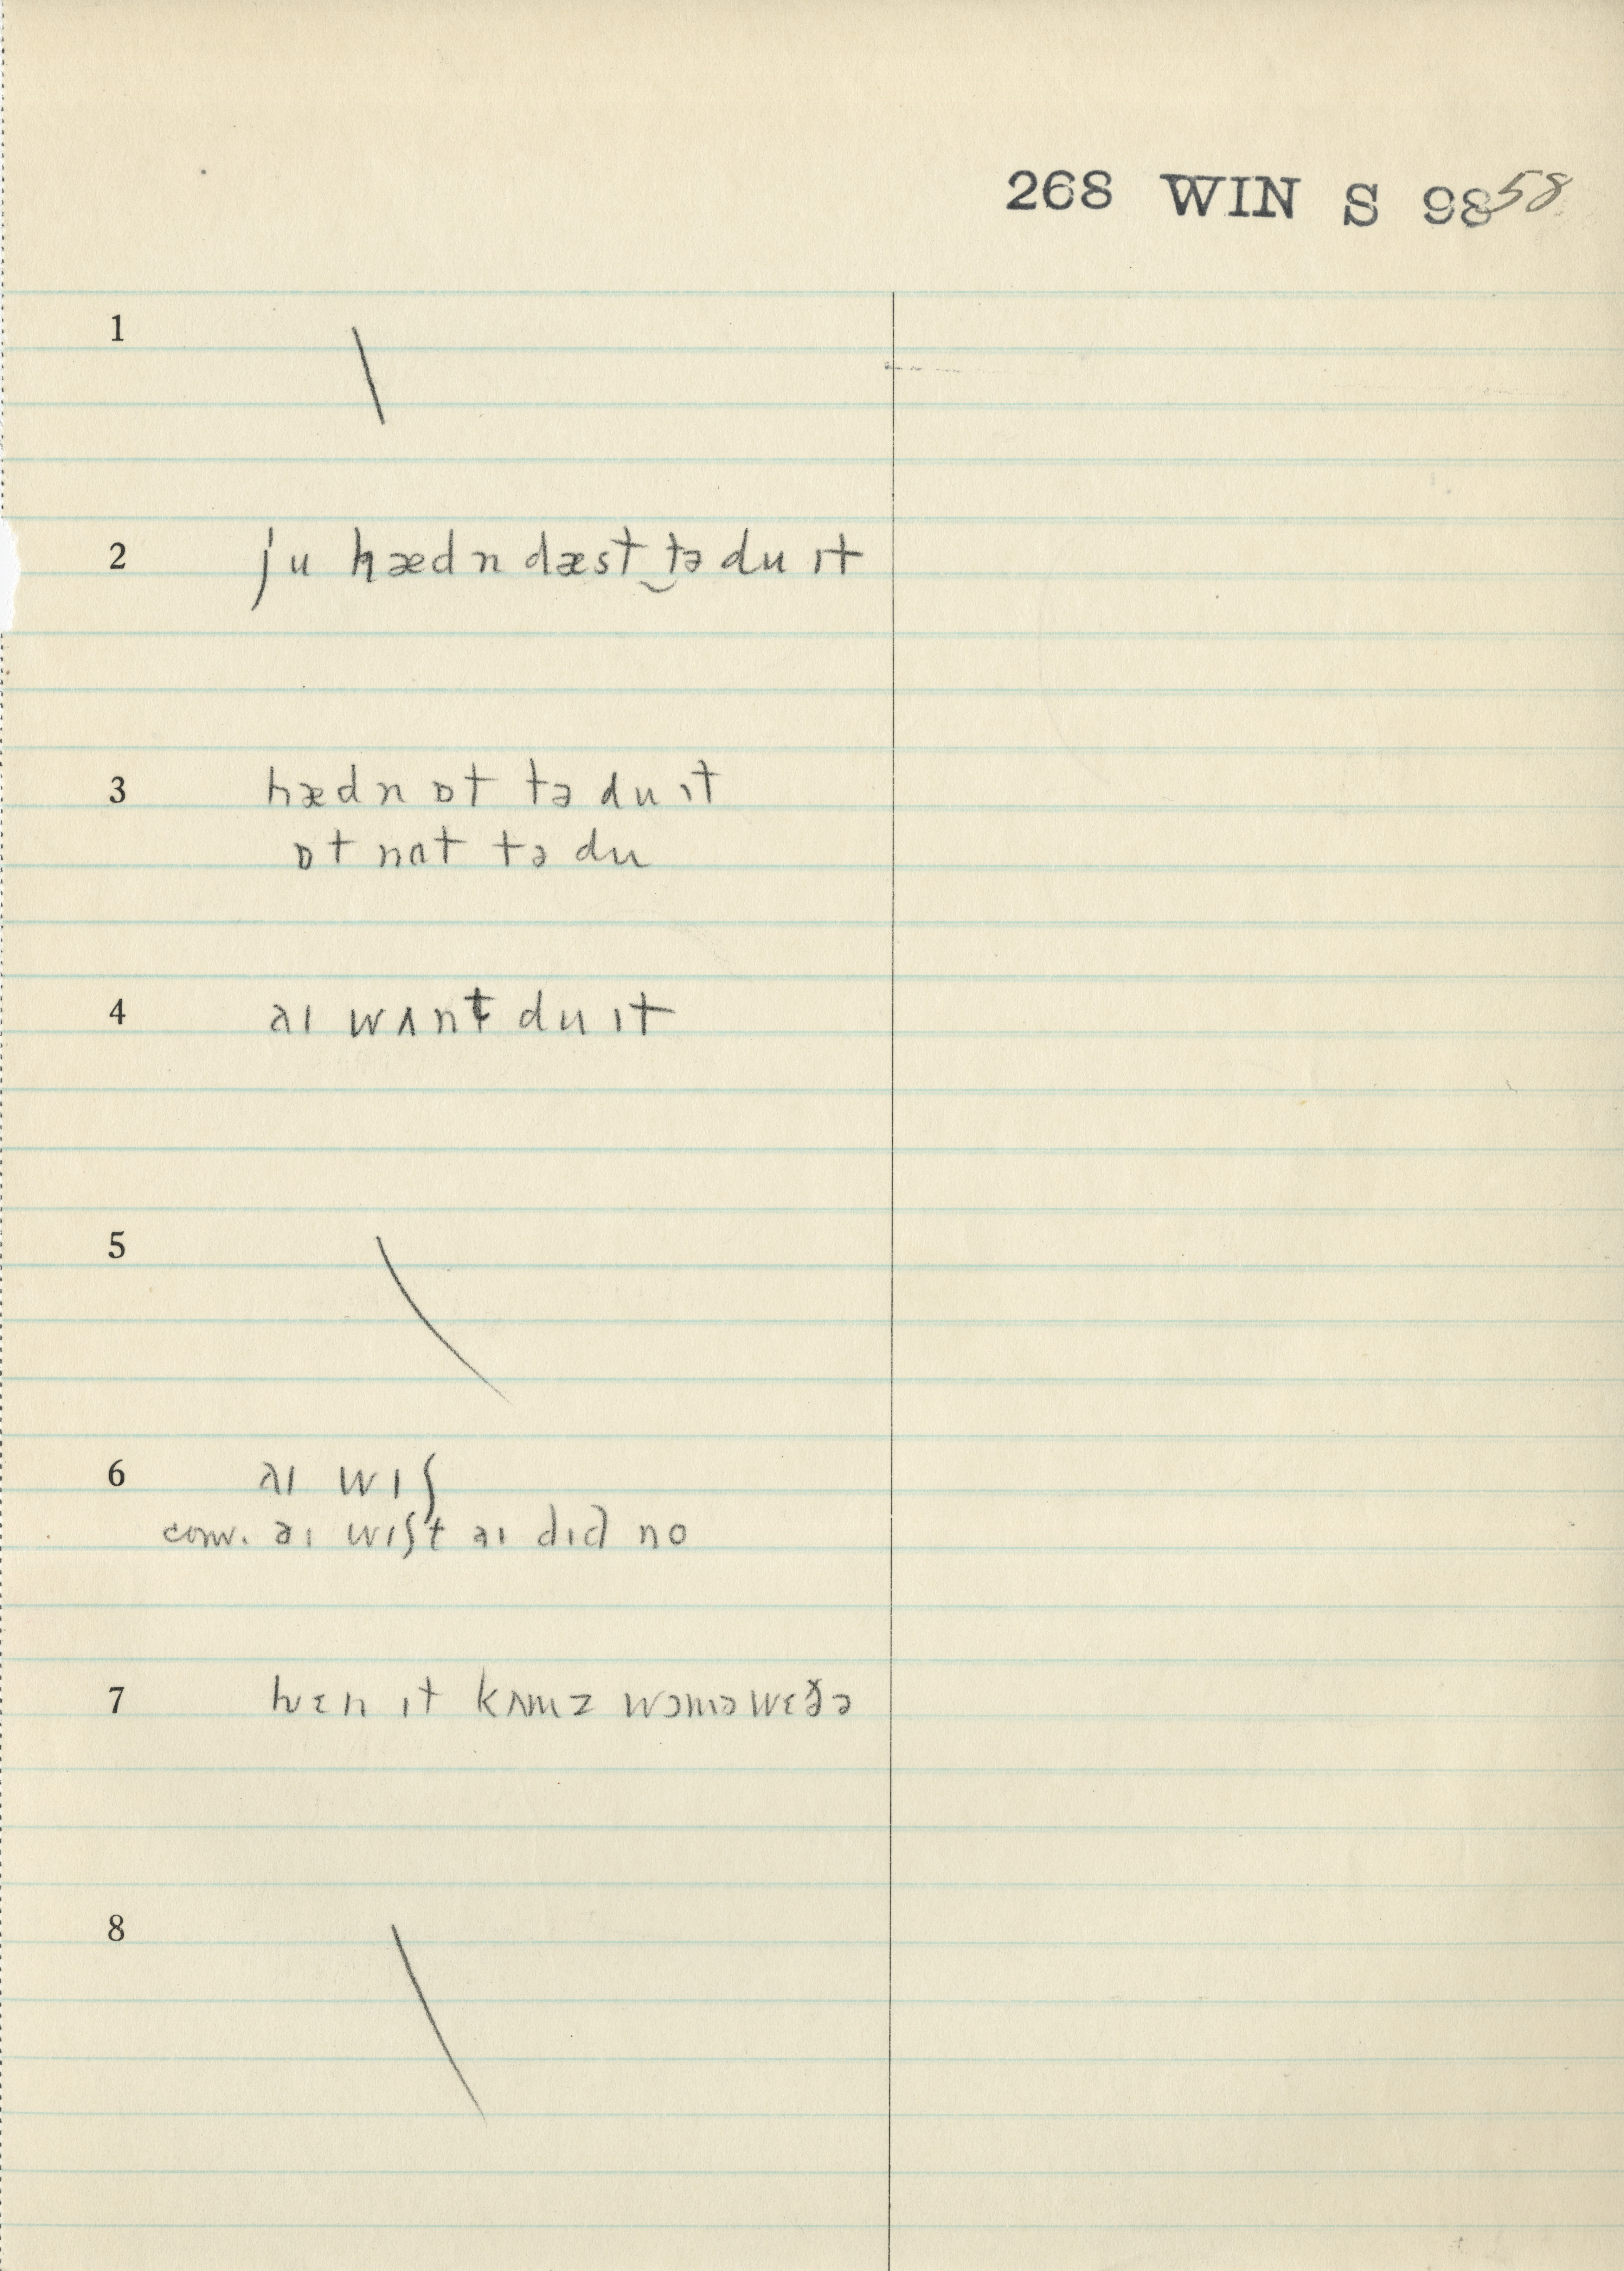 268 WIN S 98 58
1 \
2 ju hædn dæst‿tə du ɪt
3 hædn ɒt tə du ɪt
ɒt nɑt tə du
4 aɪ wʌnt du ɪt
5 \
6 aɪ wɪʃ
conv. aɪ wɪʃt aɪ dɪd no
7 hwɛn ɪt kʌmz wɔmə wɛðə
8 \